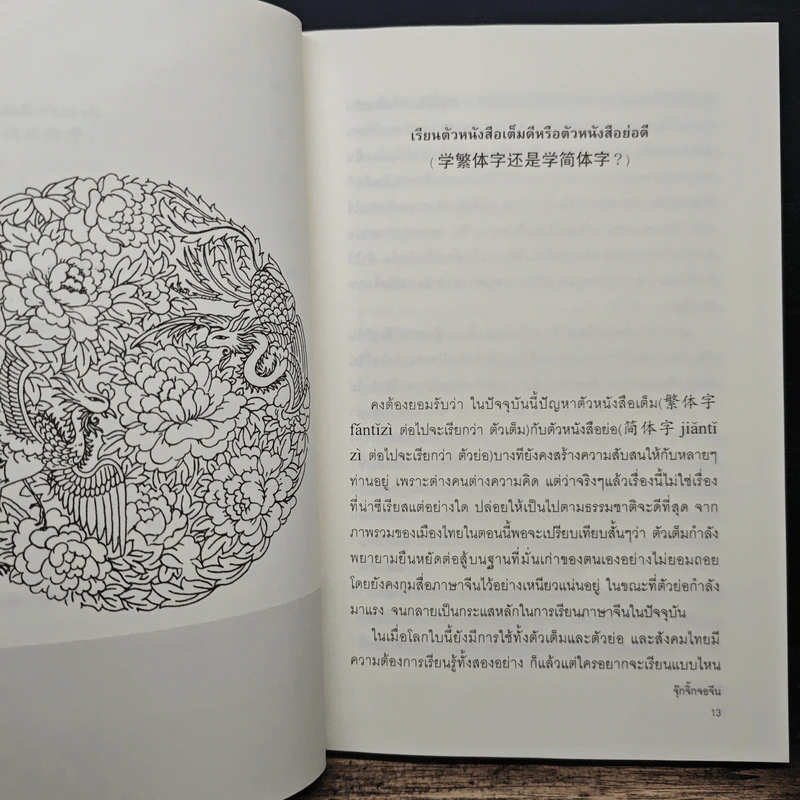 เรียนตัวหนังสือเต็มดีหรือตัวหนังสือย่อดี
(学繁体字还是学简体字?)
คงต้องยอมรับว่า ในปัจจุบันนี้ปัญหาตัวหนังสือเต็ม(繁体字
fántǐzì ต่อไปจะเรียกว่า ตัวเต็ม)กับตัวหนังสือย่อ(简体字 jiǎntǐ
zì ต่อไปจะเรียกว่า ตัวย่อ)บางทียังคงสร้างความสับสนให้กับหลายๆ
ท่านอยู่ เพราะต่างคนต่างความคิด แต่ว่าจริงๆแล้วเรื่องนี้ไม่ใช่เรื่อง
ที่น่าซีเรียสแต่อย่างใด ปล่อยให้เป็นไปตามธรรมชาติจะดีที่สุด จาก
ภาพรวมของเมืองไทยในตอนนี้พอจะเปรียบเทียบสั้นๆว่า ตัวเต็มกำลัง
พยายามยืนหยัดต่อสู้บนฐานที่มั่นเก่าของตนเองอย่างไม่ยอมถอย
โดยยังคงกุมสื่อภาษาจีนไว้อย่างเหนียวแน่นอยู่ ในขณะที่ตัวย่อกำลัง
มาแรง จนกลายเป็นกระแสหลักในการเรียนภาษาจีนในปัจจุบัน
ในเมื่อโลกใบนี้ยังมีการใช้ทั้งตัวเต็มและตัวย่อ และสังคมไทยมี
ความต้องการเรียนรู้ทั้งสองอย่าง ก็แล้วแต่ใครอยากจะเรียนแบบไหน
จุ๊กจิ๊กจอจีน
13